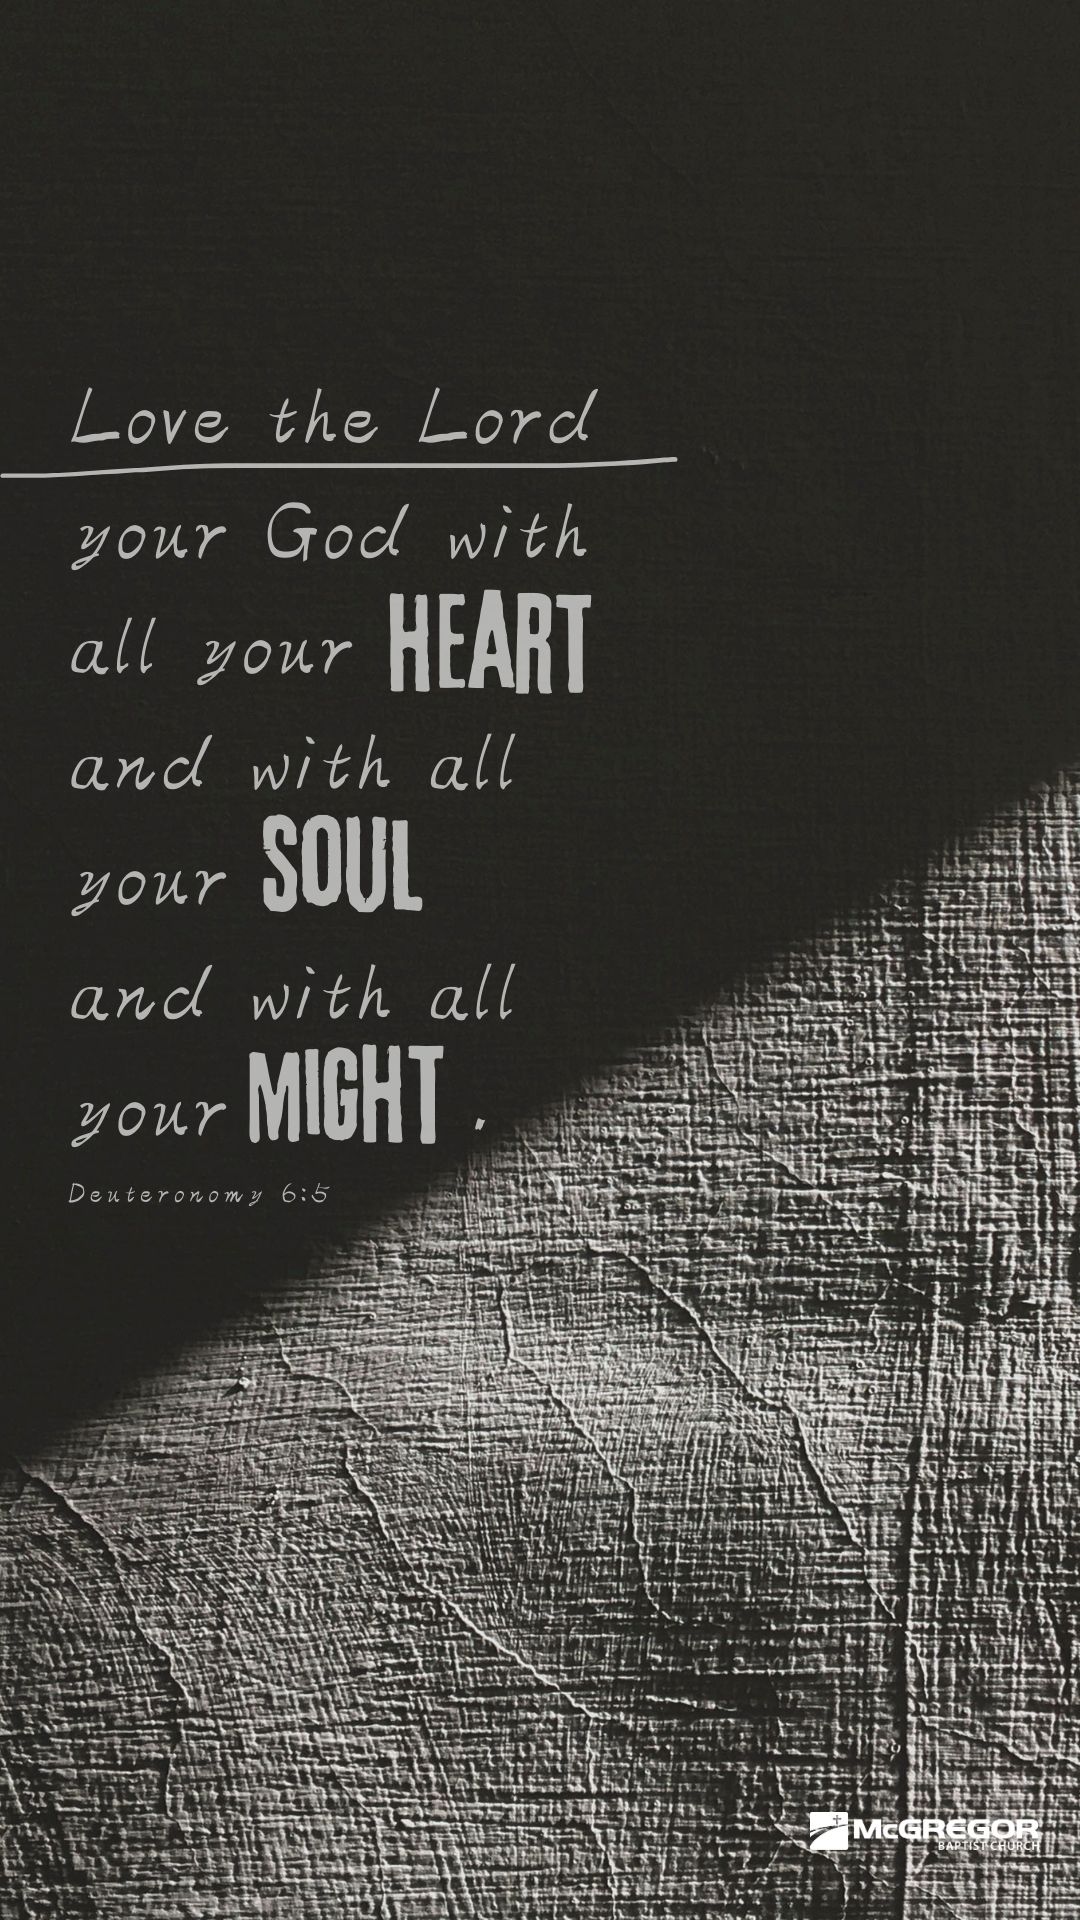 Love the Lord
your God with
all your HEART
and with all
your SOUL
and with all
your MIGHT .
Deuteronomy 6:5
McGREGOR
BAPTIST CHURCH